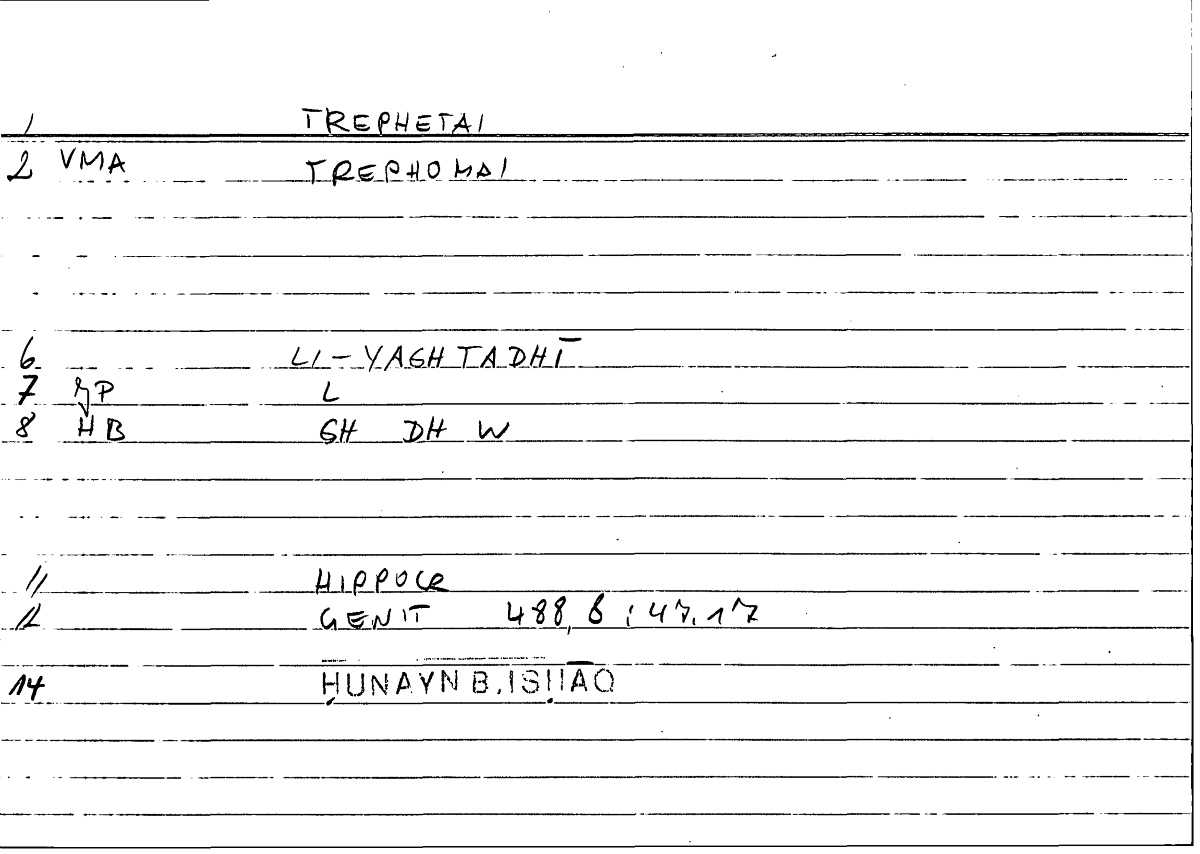 1 TREPHETAI
2 VMA TREPHOMAI
6 LI-YAGHTADHĪ
7 P L
8 HB GH DH W
11 HIPPOCR
12 GENIT 488, 6 : 47.17
14 ḤUNAYN B.ISḤĀQ